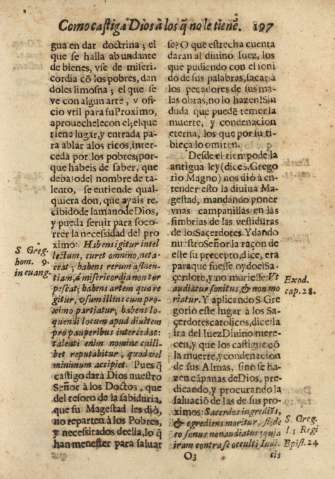 Como castiga Dios à los q̃ no le tienẽ. 197
gua en dar doctrina; el
que se halla abundante
de bienes, vse de miseri-
cordia cõ los pobres, dan
doles limosna; el que se
ve con algun arte, y ofi
cio vtil para su Proximo,
aproueche le con el; el que
tiene lugar, y entrada pa-
ra ablar a los ricos, inter-
ceda por los pobres; por
que habeis de saber, que
debaxo del nombre de ta-
lento, se entiende qual
quiera don, que ayais re-
cibido de la mano de Dios,
y pueda seruir para socor-
rer la necesidad del pro
ximo: Habens igitur intel
lectum, curet omnino, ne ta-
ceat; habens rerum affluen-
tiam, à misericordia non tor
pescat; habens artem qua re
gitur, vsum illius cum pro-
ximo partiatur; habens lo-
quendi locum apud diuitem
pro pauperibus intercedat:
talenti enim nomine cuili-
bet reputabitur, quod vel
minimum accipit. Pues q̃
castigo darà Dios nuestro
Señor à los Doctos, que
del tesoro de la sabiduria,
que su Magestad les diò,
no reparten à los Pobres,
y necesitados de ella, lo q̃
han menester para saluar
S Greg.
hom. 9.
in euang.
se? O que estrecha cuenta
daran al diuino Iuez, los
que pudiendo con el soni
do de sus palabras, sacar à
los pecadores de sus ma-
las obras, no lo hazen sin
duda que puedẽ temer la
muerte, y condenacion
eterna, los que por su ti-
bieça lo omiten.
Desde el tiempo de la
antigua ley (dize S. Grego
rio Magno) nos diò à en-
tender esto la diuina Ma-
gestad, mandando poner
vnas campanillas en las
fimbrias de las vestiduras
de los Sacerdotes. Y dando
nuestro Señor la raçon de
este su precepto, dice, era
para que fuese oydo el Sa-
cerdote, y no muriese: Et
audiatur sonitus, & non mo
riatur. Y aplicando S. Gre
gorio este lugar à los Sa-
çerdotes catolicos, dice la
ira del Iuez Diuino mere-
cen, y que los castigue cõ
la muerte, y condenacion
de sus Almas, sino se ha-
zen cãpanas de Dios, pre-
dicando, y procurando la
saluaciõ de las de sus pro-
ximos: Sacerdos ingrediẽs,
& egrediens moritur, si de
eo sonus non audiatur, quia
iram contra se occulti Iudi-
Exod.
cap. 28.
S. Greg.
l. 1 Regi
Epist. 24
O3
cis